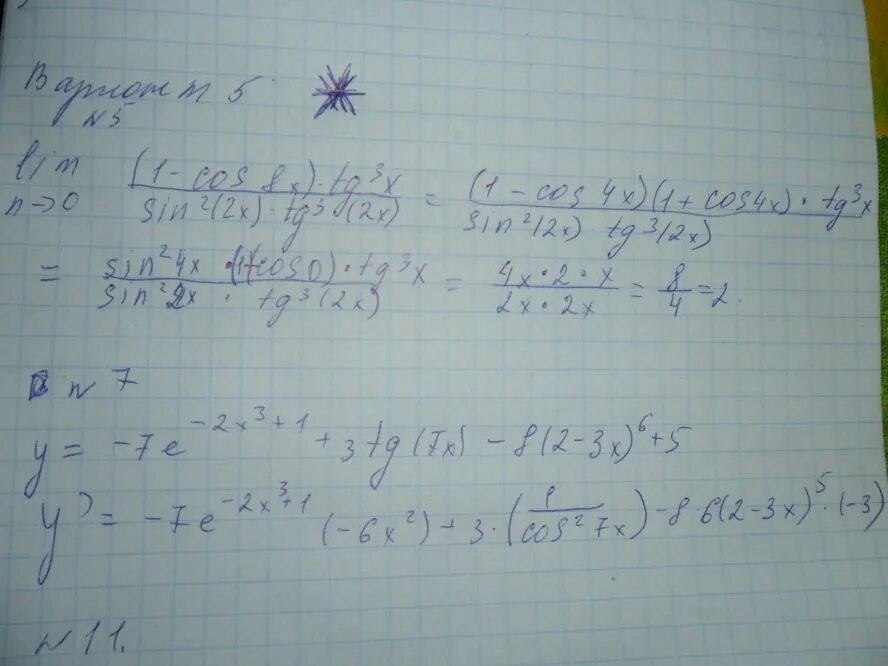 Вариант 5
№5
lim n→0 (1 - cos 8x) · tg³x / sin²(2x) · tg³(2x) = (1 - cos 4x)(1 + cos4x) · tg³x / sin²(2x) tg³(2x)
= sin²4x · (1+cos0) · tg³x / sin²2x · tg³(2x) = 4x · 2 · x / 2x · 2x = 8/4 = 2.
№ 7
y = -7e^(-2x³+1) + 3tg(7x) - 8(2-3x)⁶ + 5
y' = -7e^(-2x³+1) (-6x²) + 3 · (1/cos²7x) - 8·6(2-3x)⁵ · (-3)
№ 11.